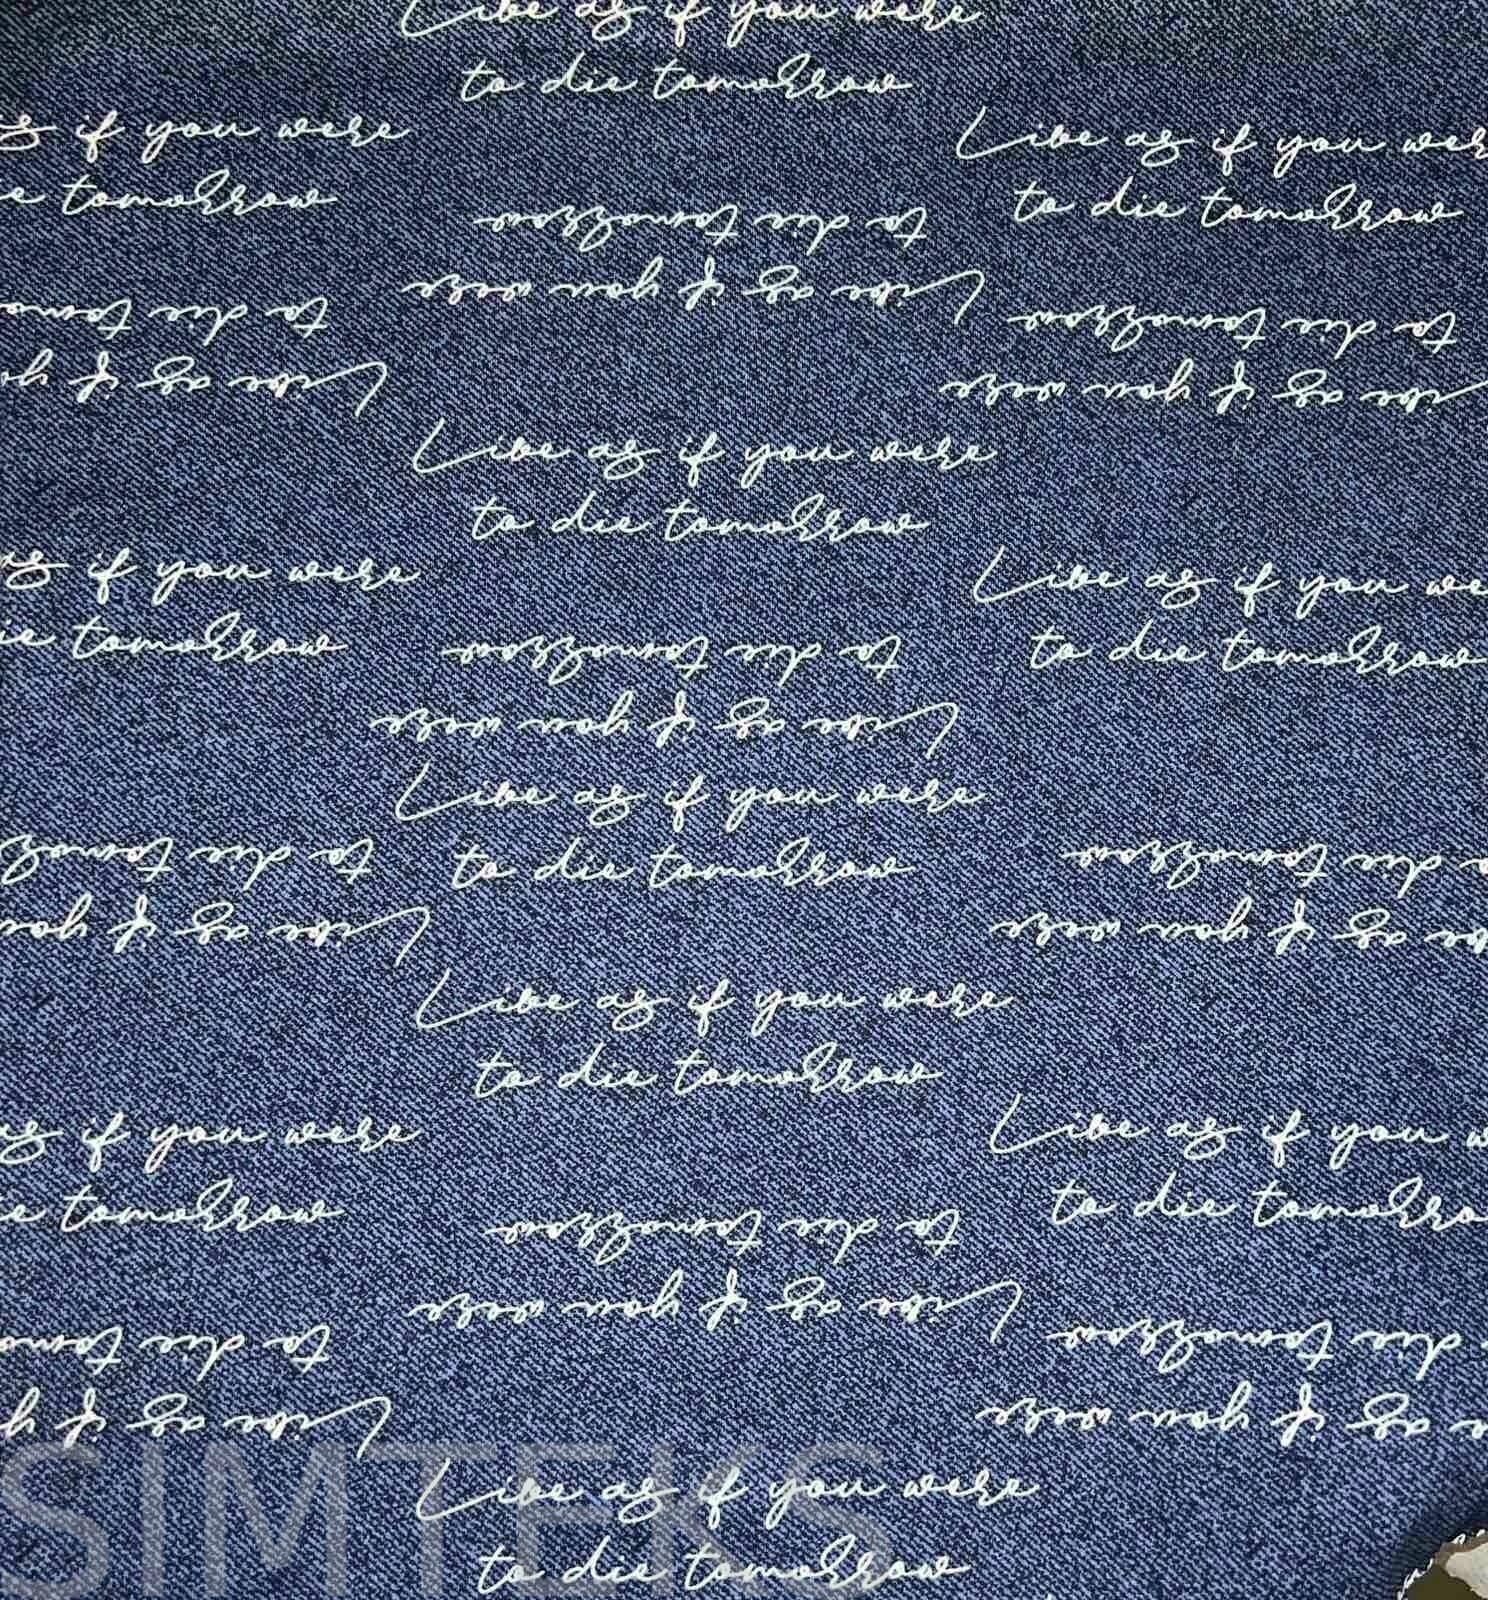 Live as if you were
to die tomorrow
as if you were
e tomorrow
Live as if you wer
to die tomorrow
Live as if you were
to die tomorrow
Live as if yo
to die tomo
ive as if you were
to die tomorrow
Live as if you were
to die tomorrow
as if you were
ie tomorrow
Live as if you we
to die tomorrow
Live as if you were
to die tomorrow
Live as if you were
to die tomorrow
Live as if you
to die tomor
ve as if you were
die tomorrow
Live as if you were
to die tomorrow
as if you were
e tomorrow
Live as if you w
to die tomorro
Live as if you were
to die tomorrow
Live as if yo
to die tomo
as if you were
die tomorrow
Live as if you were
to die tomorrow
SIMTEKS